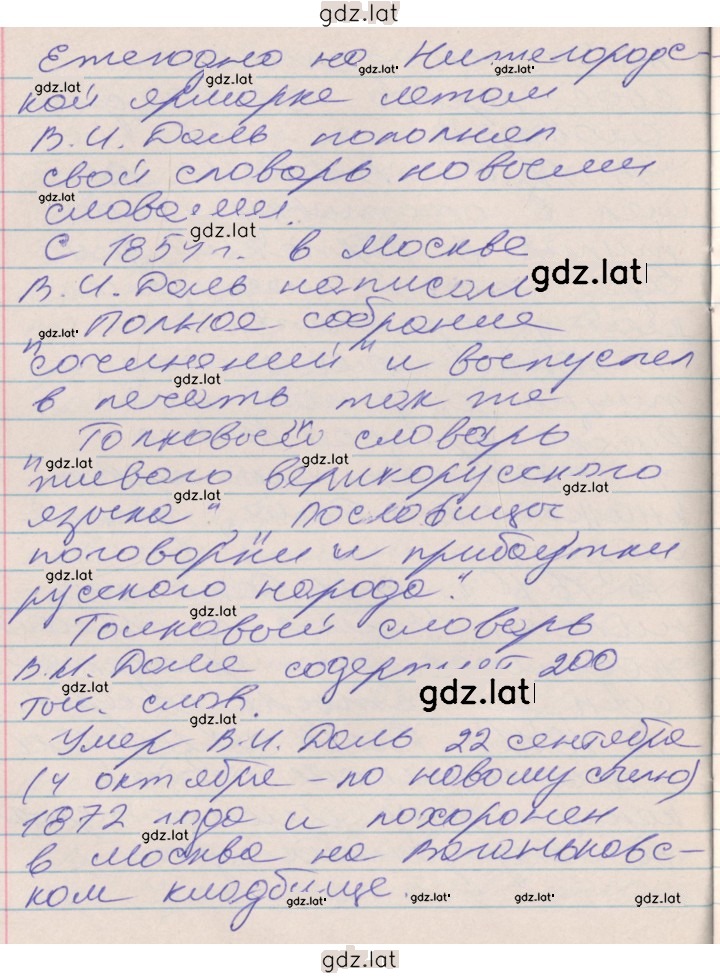 gdz.lat
Ежегодно на Нижегородс-
кой ярмарке летом
В.И. Даль пополнял
свой словарь новыми
словами.
С 1859г. в Москве
В.И. Даль написал
"Полное собрание
сочинений" и выпустил
в печать так же
"Толковый словарь
живого великорусского
языка", "Пословицы
поговорки и прибаутки
русского народа."
Толковый словарь
В.И. Даля содержит 200
тыс. слов.
Умер В.И. Даль 22 сентября
(4 октября - по новому стилю)
1872 года и похоронен
в Москва на Ваганьковс-
ком кладбище.
gdz.lat